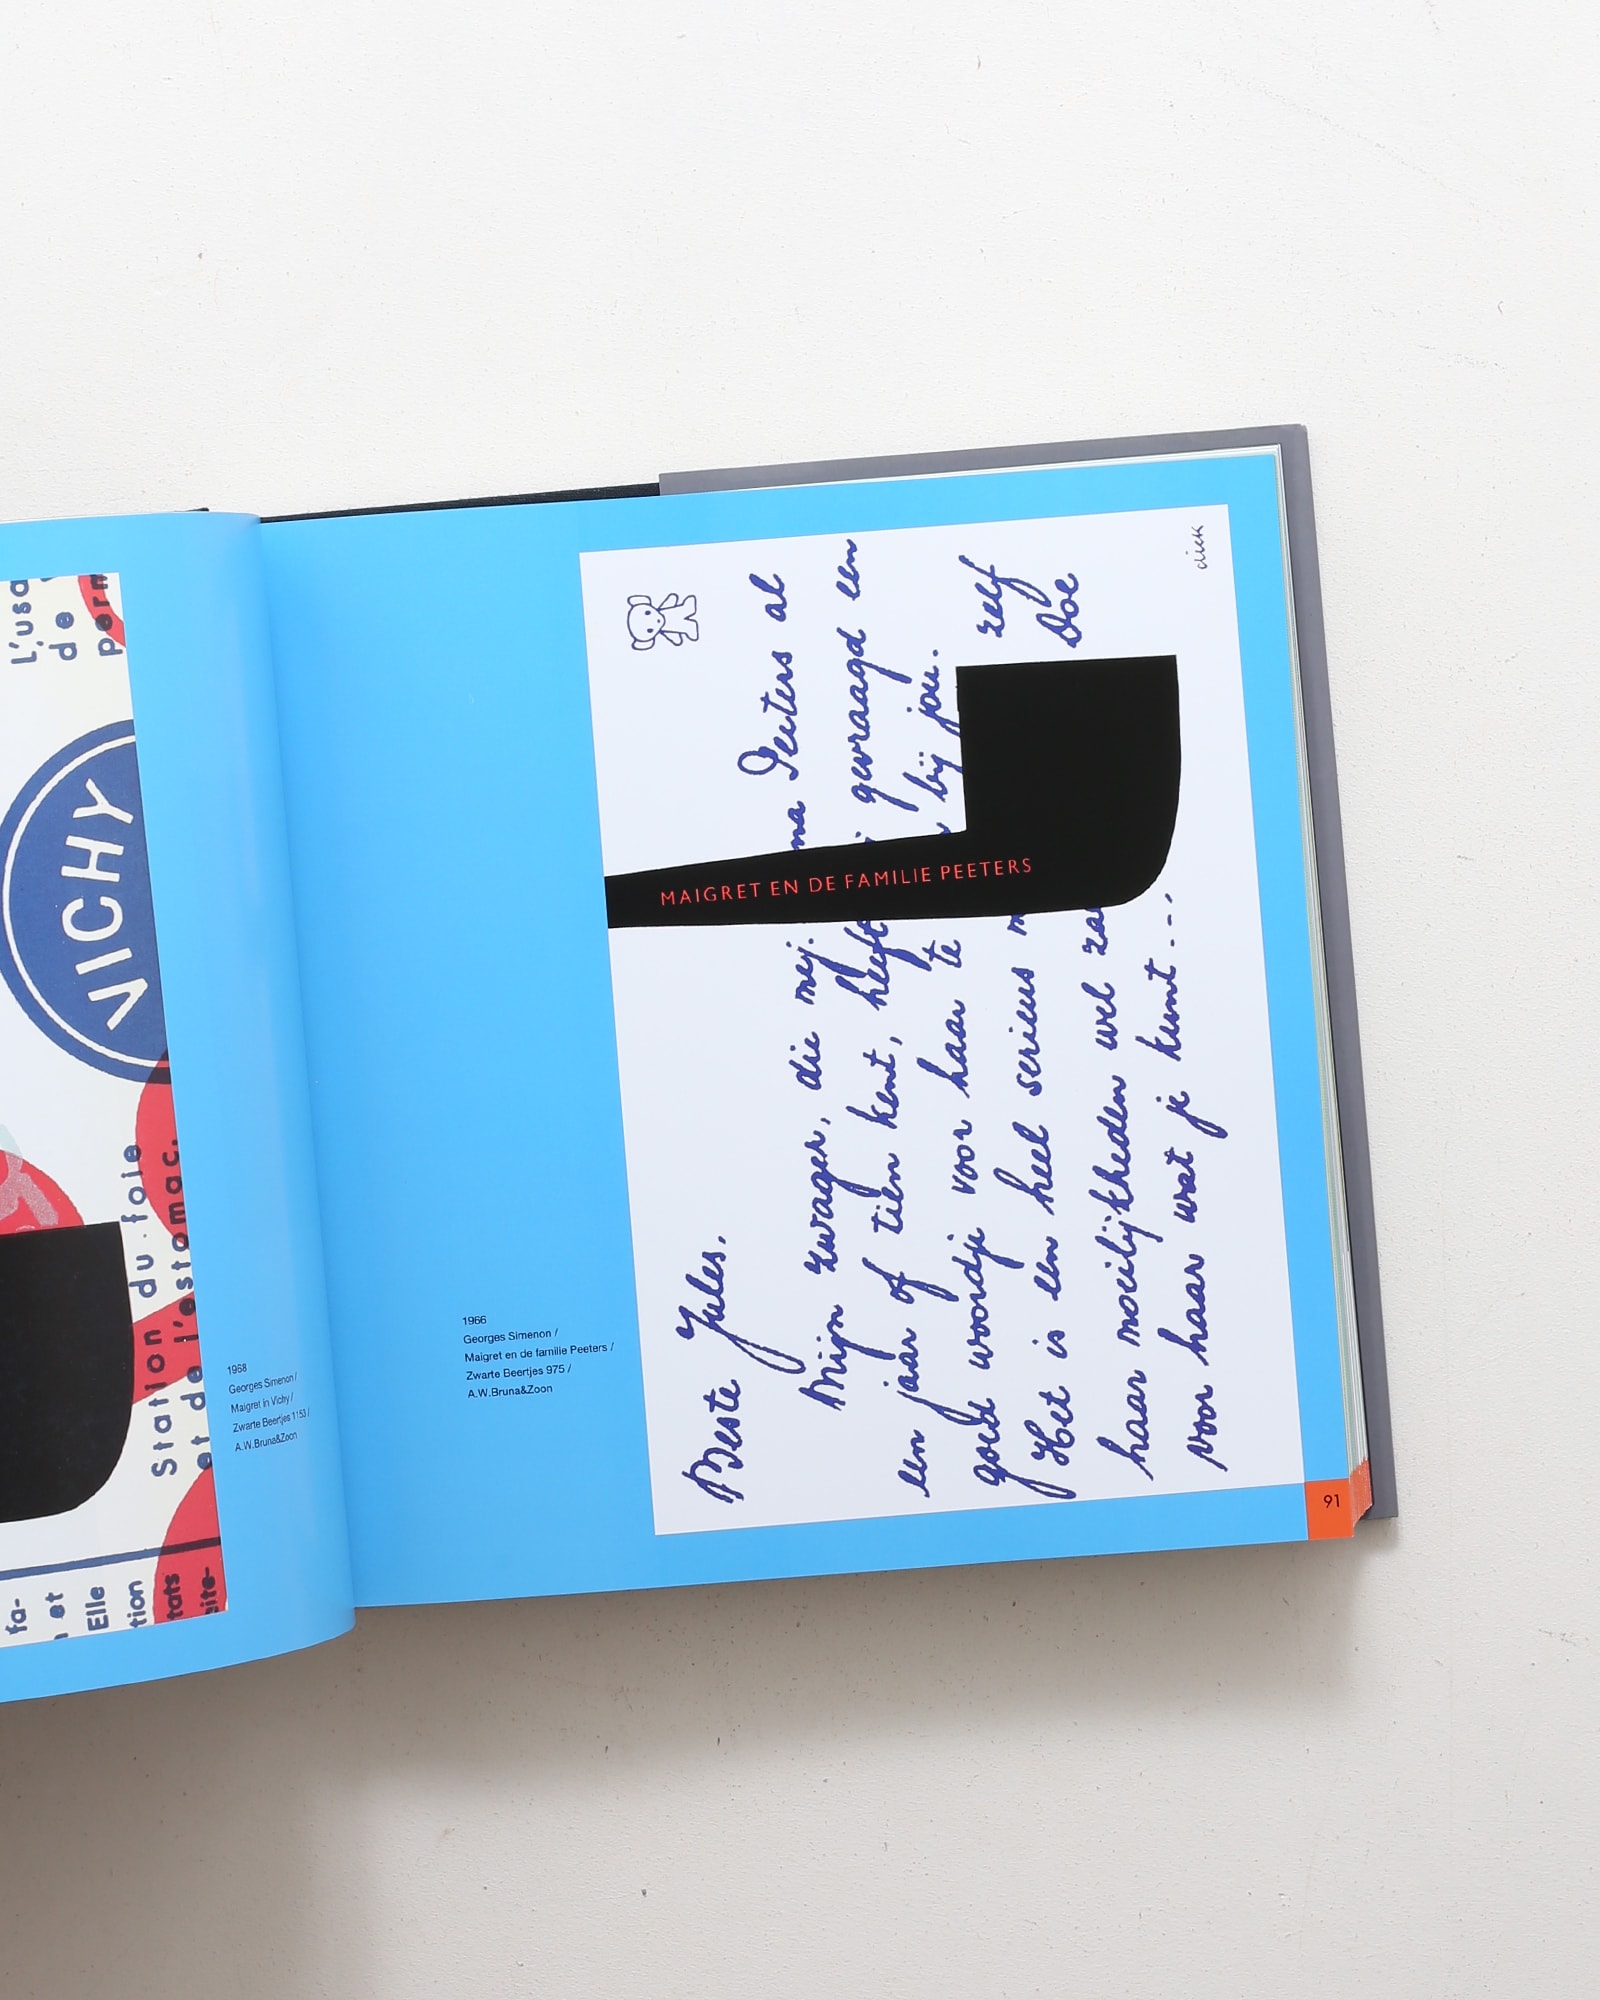 L'usa
de
perm
VICHY
Station du foie
et de l'estomac.
fa-
et
Elle
tion
tats
site-
1968
Georges Simenon /
Maigret in Vichy /
Zwarte Beertjes 1153 /
A.W.Bruna&Zoon
1966
Georges Simenon /
Maigret en de familie Peeters /
Zwarte Beertjes 975 /
A.W.Bruna&Zoon
Beste Jules,
Mijn zwager, die mej. na Peeters al
een jaar of tien kent, heeft mij gevraagd een
goed woordje voor haar te bij jou.
Het is een heel serieus zelf
haar moeilijkheden wel Doe
voor haar wat je kunt...
MAIGRET EN DE FAMILIE PEETERS
dick
91